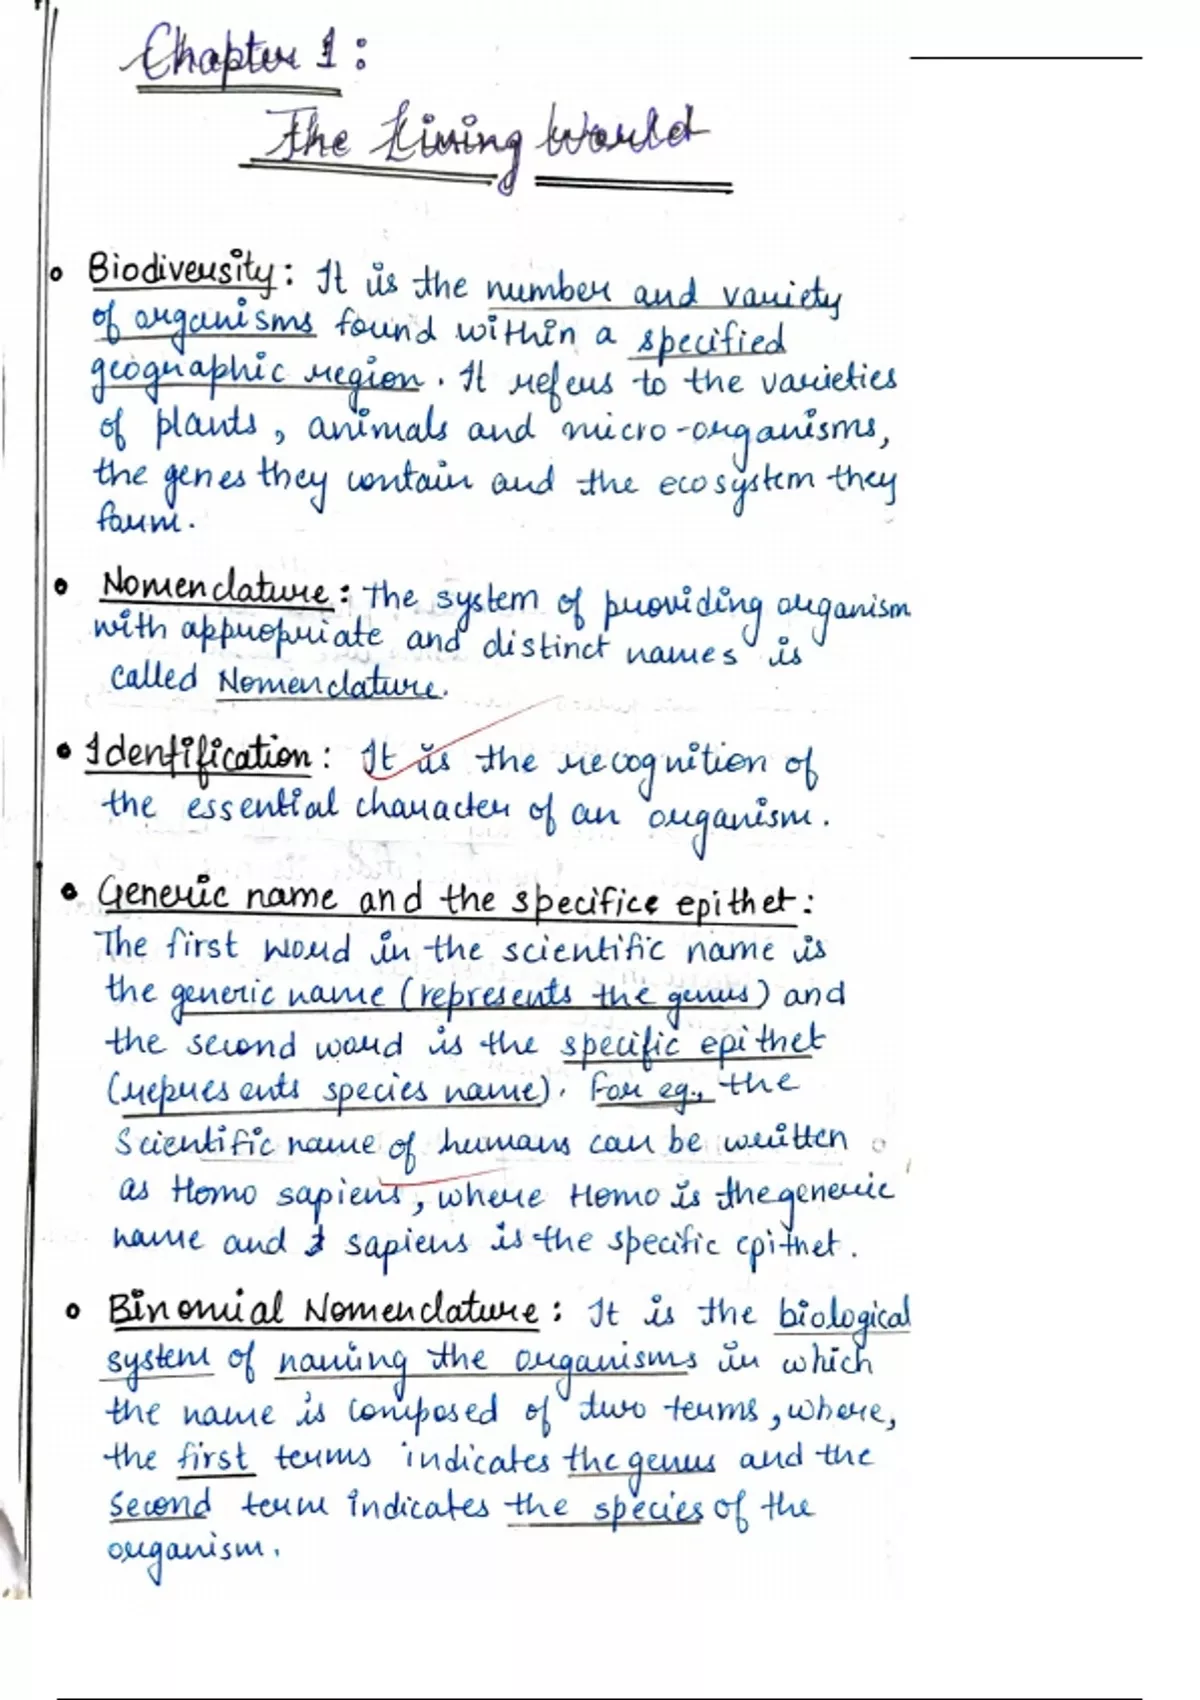 Chapter 1:
The Living World
Biodiversity: It is the number and variety
of organisms found within a specified
geographic region. It refers to the varieties
of plants, animals and micro-organisms,
the genes they contain and the ecosystem they
form.
Nomenclature: the system of providing organism
with appropriate and distinct names is
called Nomenclature.
Identification: It is the recognition of
the essential character of an organism.
Generic name and the specifice epithet:
The first word in the scientific name is
the generic name (represents the genus) and
the second word is the specific epithet
(represents species name). For eg., the
Scientific name of humans can be written
as Homo sapiens, where Homo is the generic
name and sapiens is the specific epithet.
Binomial Nomenclature: It is the biological
system of naming the organisms in which
the name is composed of two terms, where,
the first terms indicates the genus and the
second term indicates the species of the
organism.